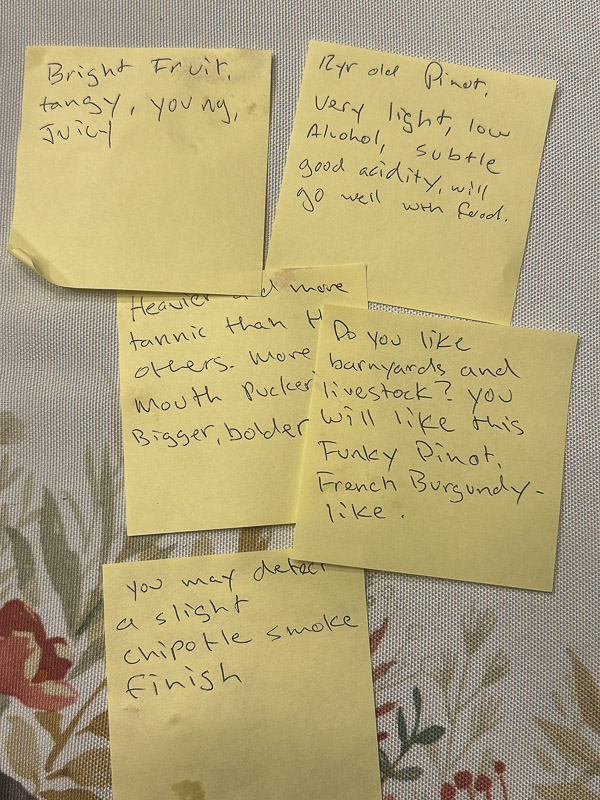 Bright Fruit,
tangy, young,
Juicy
12yr old Pinot,
very light, low
Alcohol, subtle
good acidity, will
go well with food.
Heavier and more
tannic than
others. More
Mouth Pucker
Bigger, bolder
Do you like
barnyards and
livestock? you
will like this
Funky Pinot,
French Burgundy-
like.
you may detect
a slight
chipotle smoke
finish